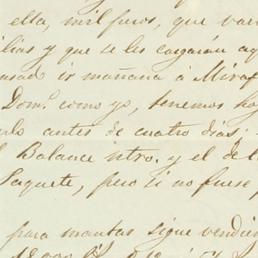 ella, mil pesos, que va
ilias y que se les cargarán aq
nsado ir mañana á Miraf
Domº como yo, tenemos ha
lo antes de cuatro dias;
l Balance intro. y el de l
Paquete, pero si no fuese p
para mantas sigue vendien